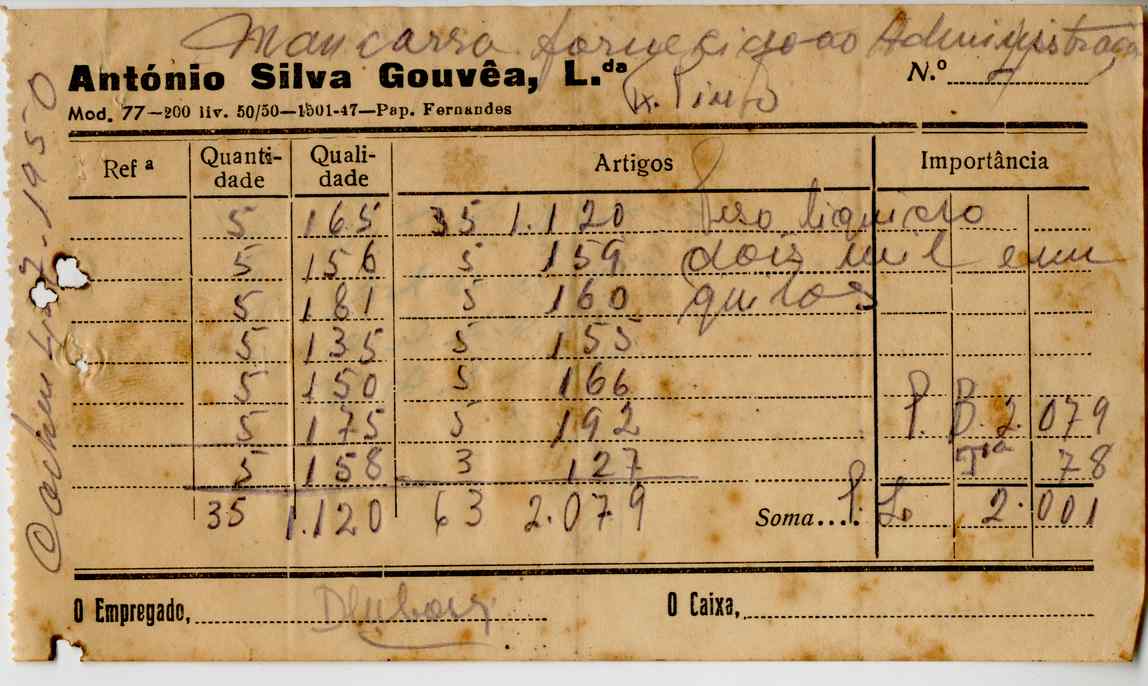 Mancarra fornecido ao Administração
António Silva Gouvêa, L.da
N.º
Pinto
Mod. 77—200 liv. 50/50—1501-47—Pap. Fernandes
Ref ª Quanti-dade Quali-dade Artigos Importância
5 165 35 1.120 Peso liquido
5 156 5 159 dois mil e um
5 181 5 160 quilos
5 135 5 155
5 150 5 166
5 175 5 192 P. B. 2.079
5 158 3 127 Tra 78
35 1.120 63 2.079 Soma.... P. L. 2.001
O Empregado,
O Caixa,
1950